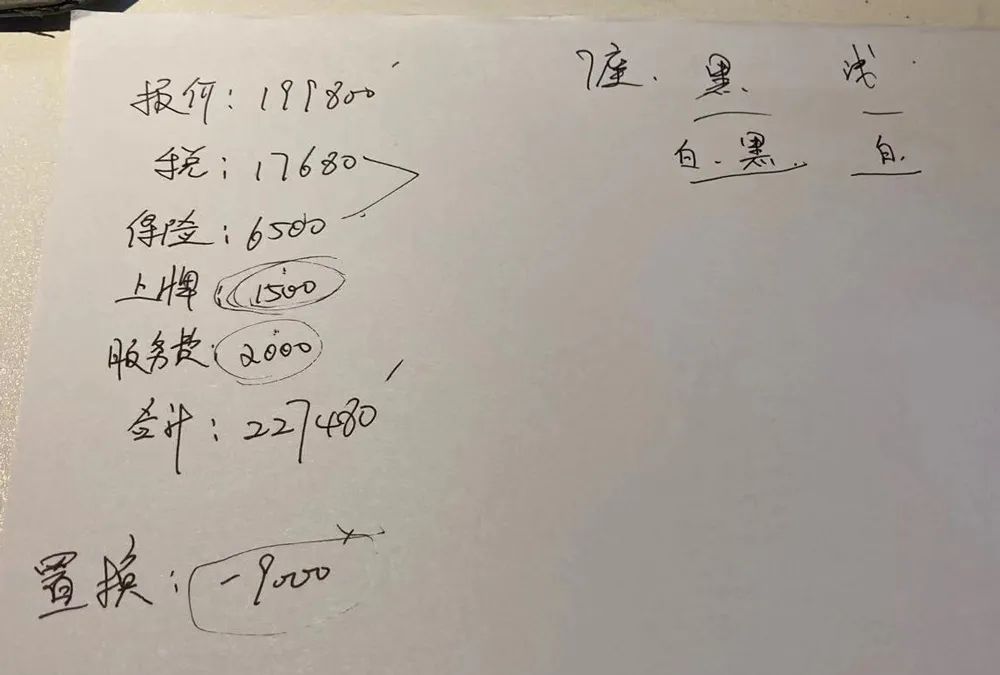 报价：199800
税：17680
保险：6500
上牌：1500
服务费：2000
合计：227480
置换：-9000
7座. 黑. 浅.
白.黑. 白.